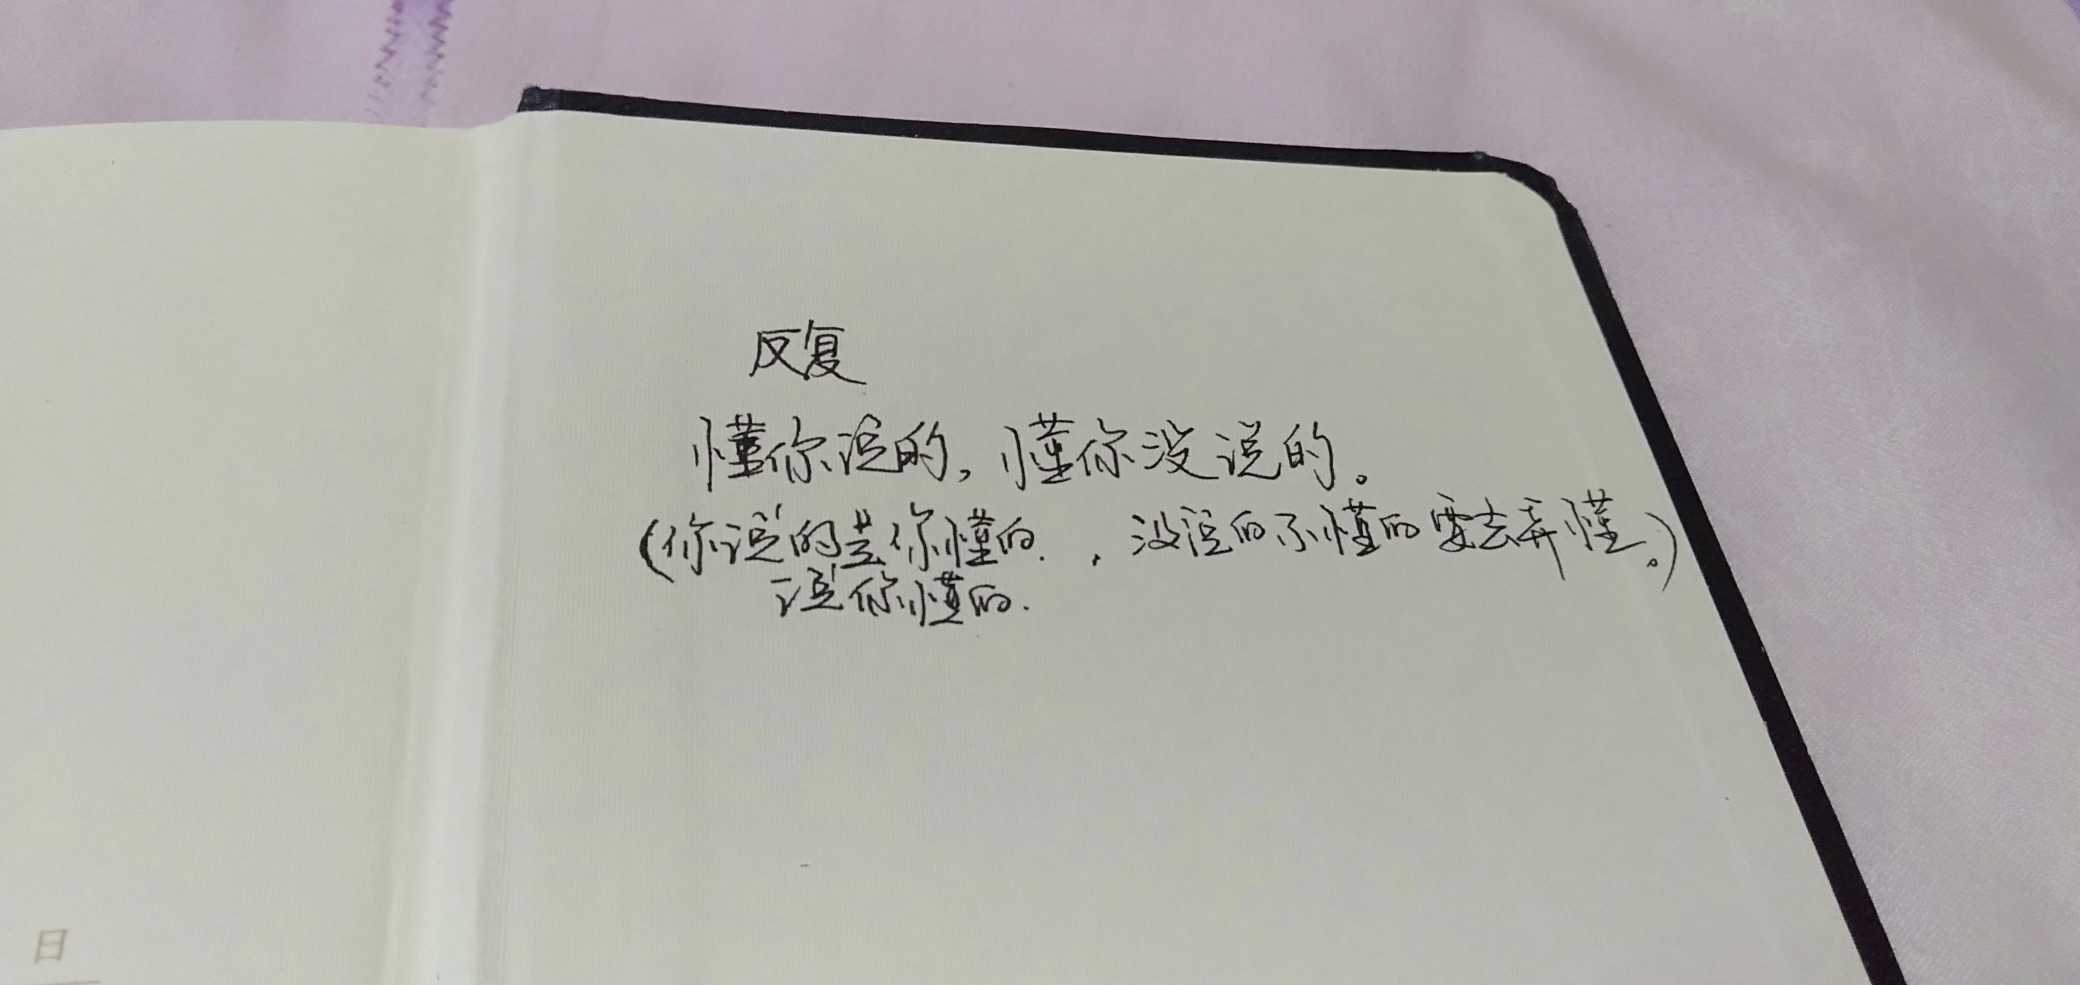 反复
懂你说的，懂你没说的。
(你说的是你懂的.，没说的不懂的要去弄懂。)
说你懂的.
日